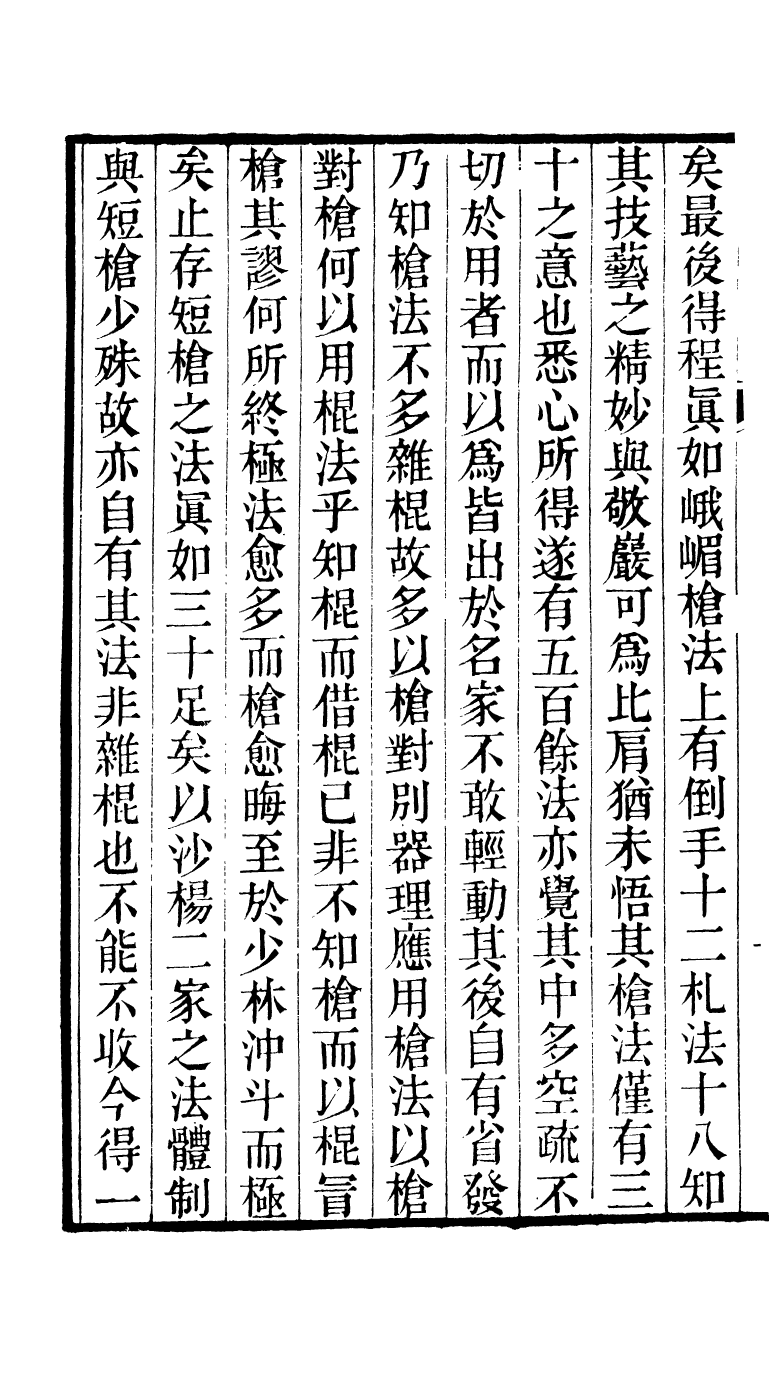 矣最後得程眞如峨嵋槍法上有倒手十二札法十八知
其技藝之精妙與敬巖可爲比肩猶未悟其槍法僅有三
十之意也悉心所得遂有五百餘法亦覺其中多空疏不
切於用者而以爲皆出於名家不敢輕動其後自有省發
乃知槍法不多雜棍故多以槍對別器理應用槍法以槍
對槍何以用棍法乎知棍而借棍已非不知槍而以棍冒
槍其謬何所終極法愈多而槍愈晦至於少林沖斗而極
矣止存短槍之法眞如三十足矣以沙楊二家之法體制
與短槍少殊故亦自有其法非雜棍也不能不收今得一